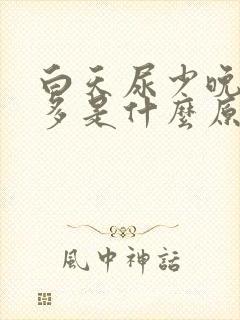 白天尿少晚
多是什麼原
風中神話